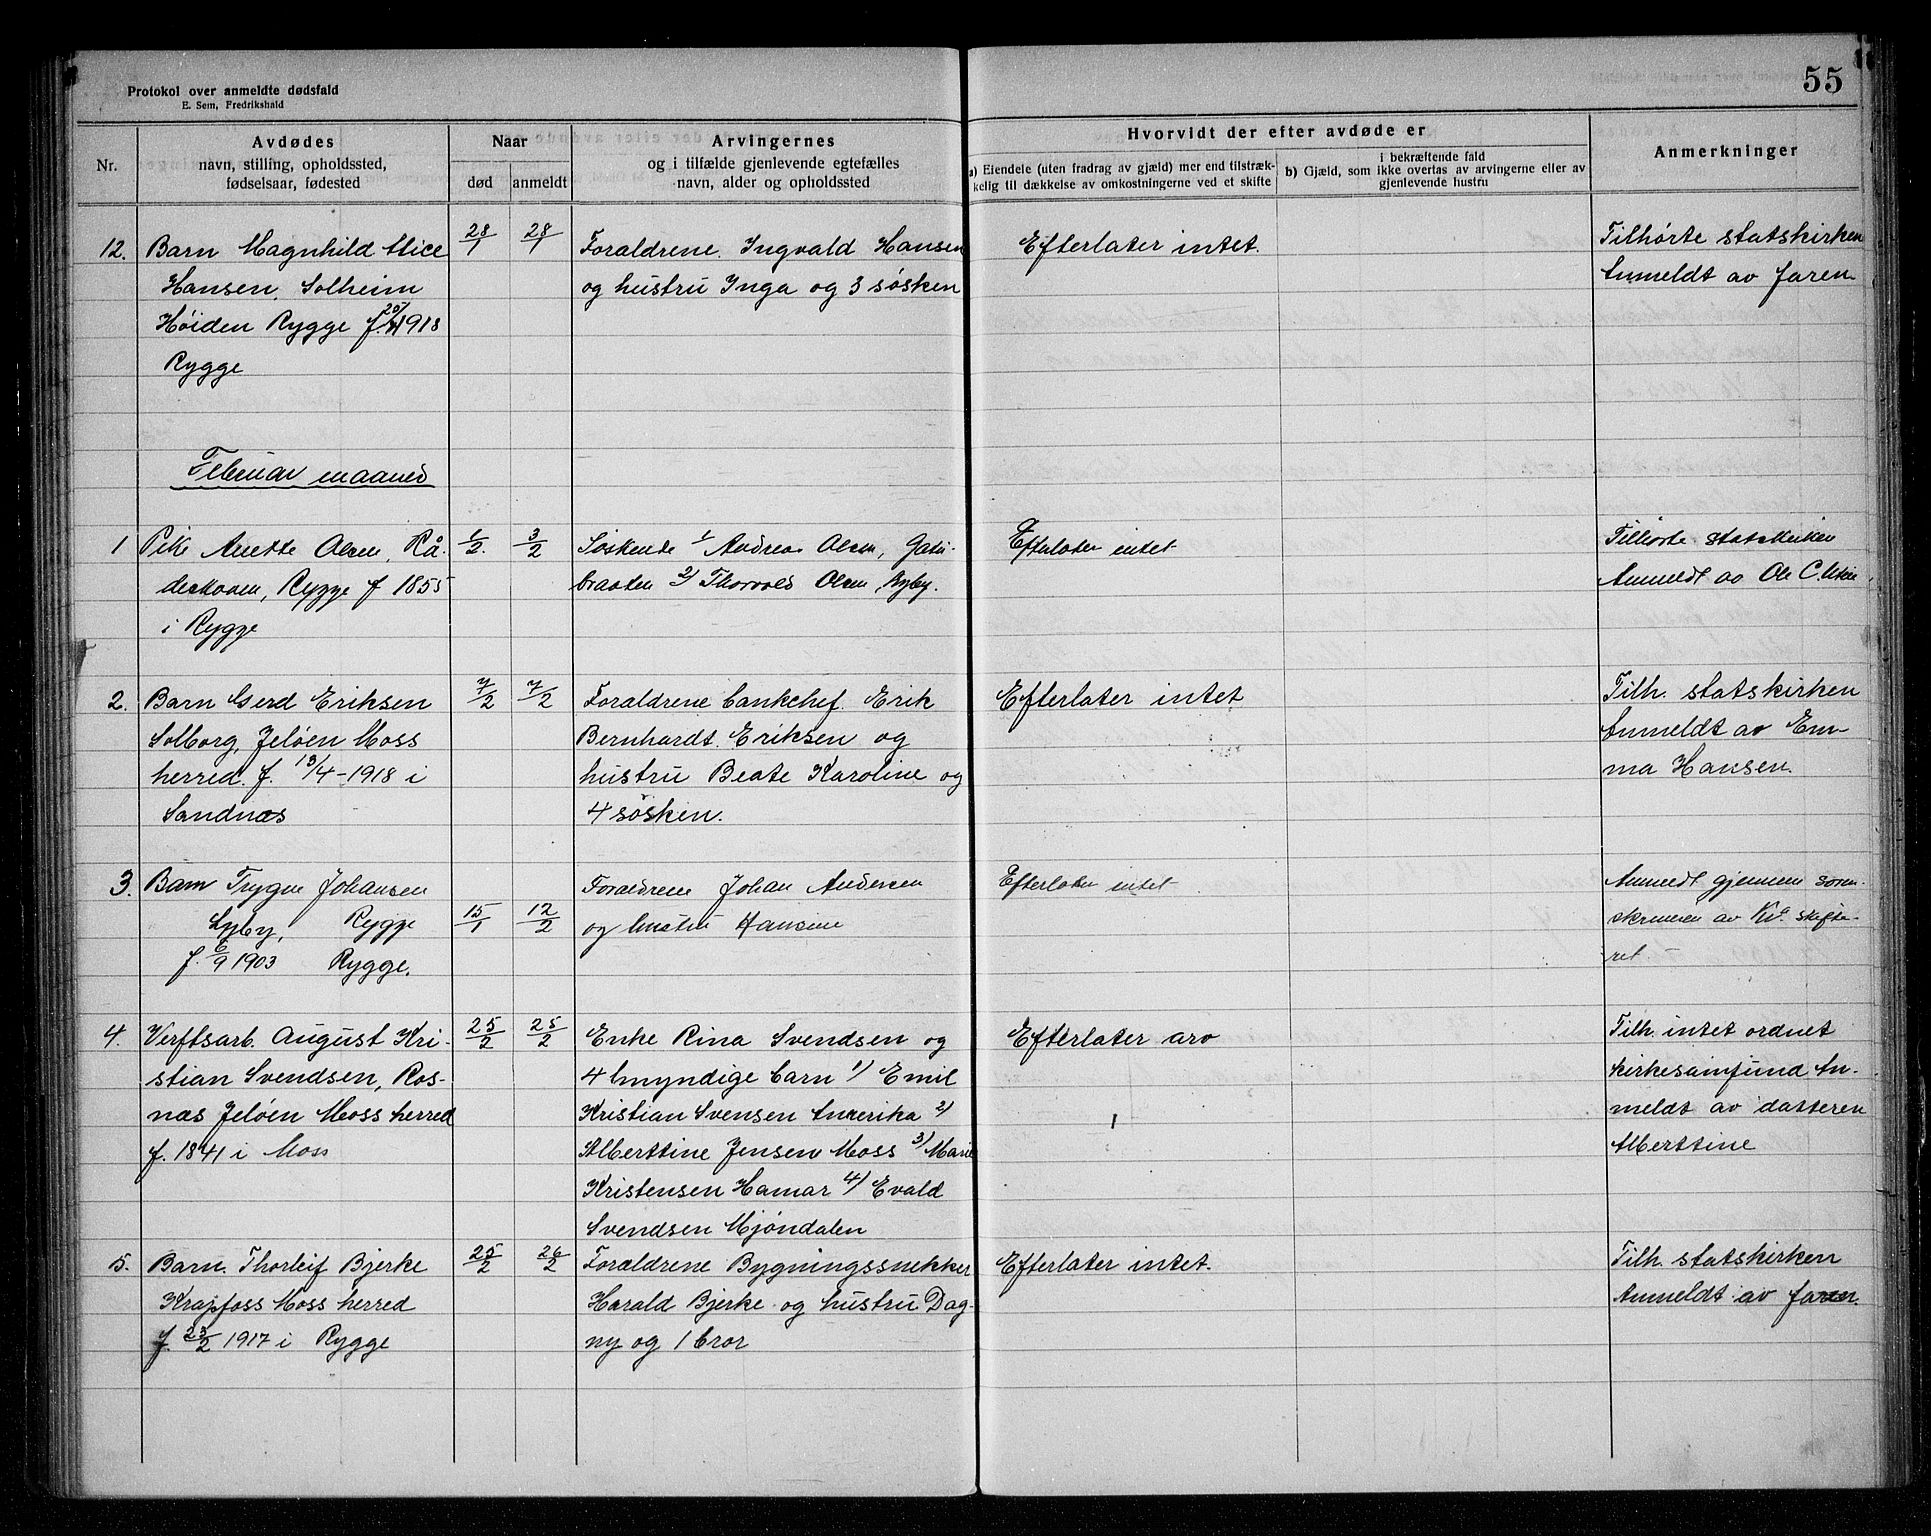 55
Protokol over anmeldte dødsfald
E. Sem, Fredrikshald
Nr.
Avdødes
navn, stilling, opholdssted,
fødselsaar, fødested
Naar
død
anmeldt
Arvingernes
og i tilfælde gjenlevende egtefælles
navn, alder og opholdssted
Hvorvidt der efter avdøde er
a) Eiendele (uten fradrag av gjæld) mer end tilstræk-
kelig til dækkelse av omkostningerne ved et skifte
i bekræftende fald
b) Gjæld, som ikke overtas av arvingerne eller av
gjenlevende hustru
Anmerkninger
12.
Barn Magnhild Alice
Hansen, Solheim
Høiden Rygge f. 1918
Rygge
28/1
28/1
Forældrene. Ingvald Hansen
og hustru Inga og 3 søsken
Efterlater intet.
Tilhørte statskirken
Anmeldt av faren
Februar maaned
1
Pike Anette Olsen, Rå-
deskoven, Rygge f 1855
i Rygge
1/2.
3/2
Søskende 1/ Andreas Olsen,
braaten 2/ Thorvald Olsen, Ryby.
Efterlater intet
Tilhørte statskirken
Anmeldt av Ole C.
2.
Barn Gerd Eriksen
Solborg, Jeløen Moss
herred. f. 13/4-1918 i
Sandnæs
7/2
7/2
Forældrene bankchef. Erik
Bernhardt. Eriksen og
hustru Beate Karoline og
4 søsken.
Efterlater intet
Tilh. statskirken
Anmeldt av Em-
ma Hansen.
3.
Barn Trygve Johansen
Rygge
f. 6/9 1903 Rygge.
15/1
12/2
Forældrene Johan Andersen
og hustru Hansine
Efterlater intet
Anmeldt gjennem soren-
skriveren av skifte-
ret
4.
Verftsarb. August Kri-
stian Svendsen, Ros-
næs Jeløen Moss herred
f. 1841 i Moss
25/2
25/2
Enke Rina Svendsen og
4 myndige barn 1) Emil
Kristian Svensen Amerika 2)
Alberttine Jensen Moss 3) Marie
Kristensen Hamar 4) Evald
Svendsen Mjøndalen
Efterlater arv
Tilh. intet ordnet
kirkesamfund An-
meldt av datteren
Alberttine
5.
Barn. Thorleif Bjerke
Krapfoss Moss herred
f. 23/2 1917 i Rygge
25/2
26/2
Forældrene Bygningssnekker
Harald Bjerke og hustru Dag-
ny og 1 bror
Efterlater intet.
Tilh. statskirken
Anmeldt av faren.